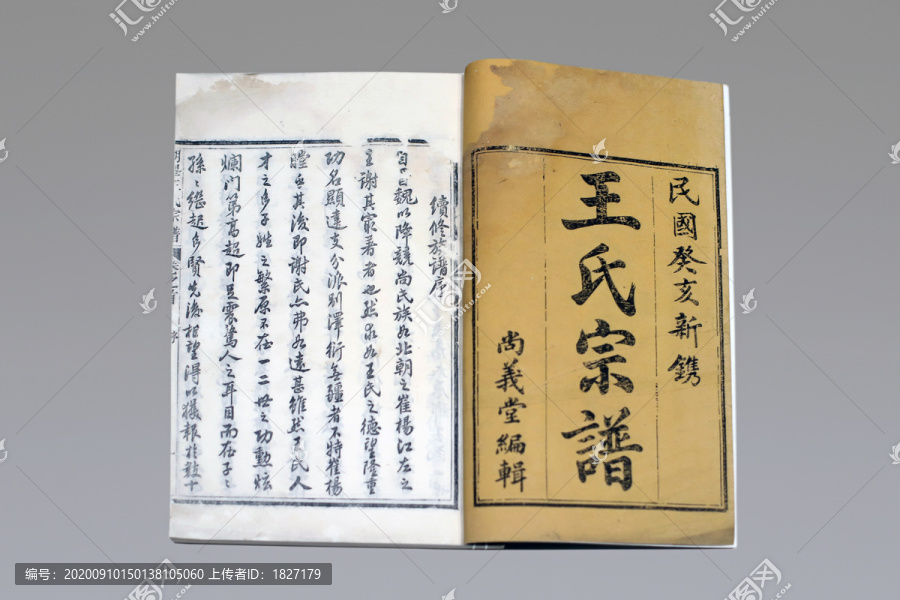 民國癸亥新鐫
王氏宗譜
尚義堂編輯
續修族譜序
自曹魏以降競尚民族如北朝之崔楊江左之
王謝其最著者也然求如王氏之德望隆重
功名顯達支分派別澤衍無疆者不特崔楊
瞠乎其後即謝氏亦弗如遠甚雖然王氏人
才之多子姓之繁原不在一二世之功勳炫
爛門第高超即足震驚人之耳目而在子之
孫之繼起多賢先後相望得以
编号：20200910150138105060 上传者ID：1827179
汇图网